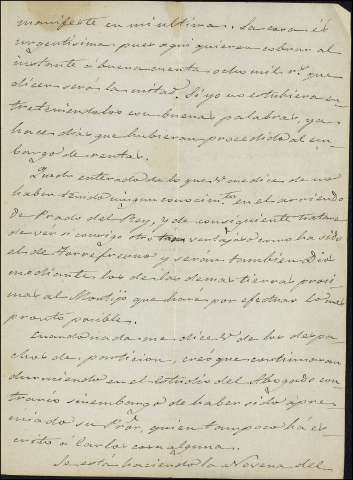 manifesté en mi última. La cosa és
urgentisima pues aqui quieren cobrar al
instante á buena cuenta ocho mil r.s que
dicen será la mitad. Si yo no estubiera en
treteniendolos con buenas palabras, ya
hace dias que hubieran procedido al em
bargo de rentas.
Quedo enterado de lo que V. me dice de no
haber tenido ningun conocim.to en el arriendo
de Prado del Rey, y de consiguiente trataré
de ver si consigo otro tan ventajoso como ha sido
el de Torrefresno y seran tambien Dios
mediante, los de las demas tierras proxi
mas al Montijo que hare por efectuar lo mas
pronto posible.
Cuando nada me dice V. de los despa
chos de particion, creo que continuaran
durmiendo en el Estudio del Abogado con
trario sinembargo de haber sido apre
miado su Pror, quien tampoco há es
crito á Carlos cosa alguna.
Se está haciendo la Novena del